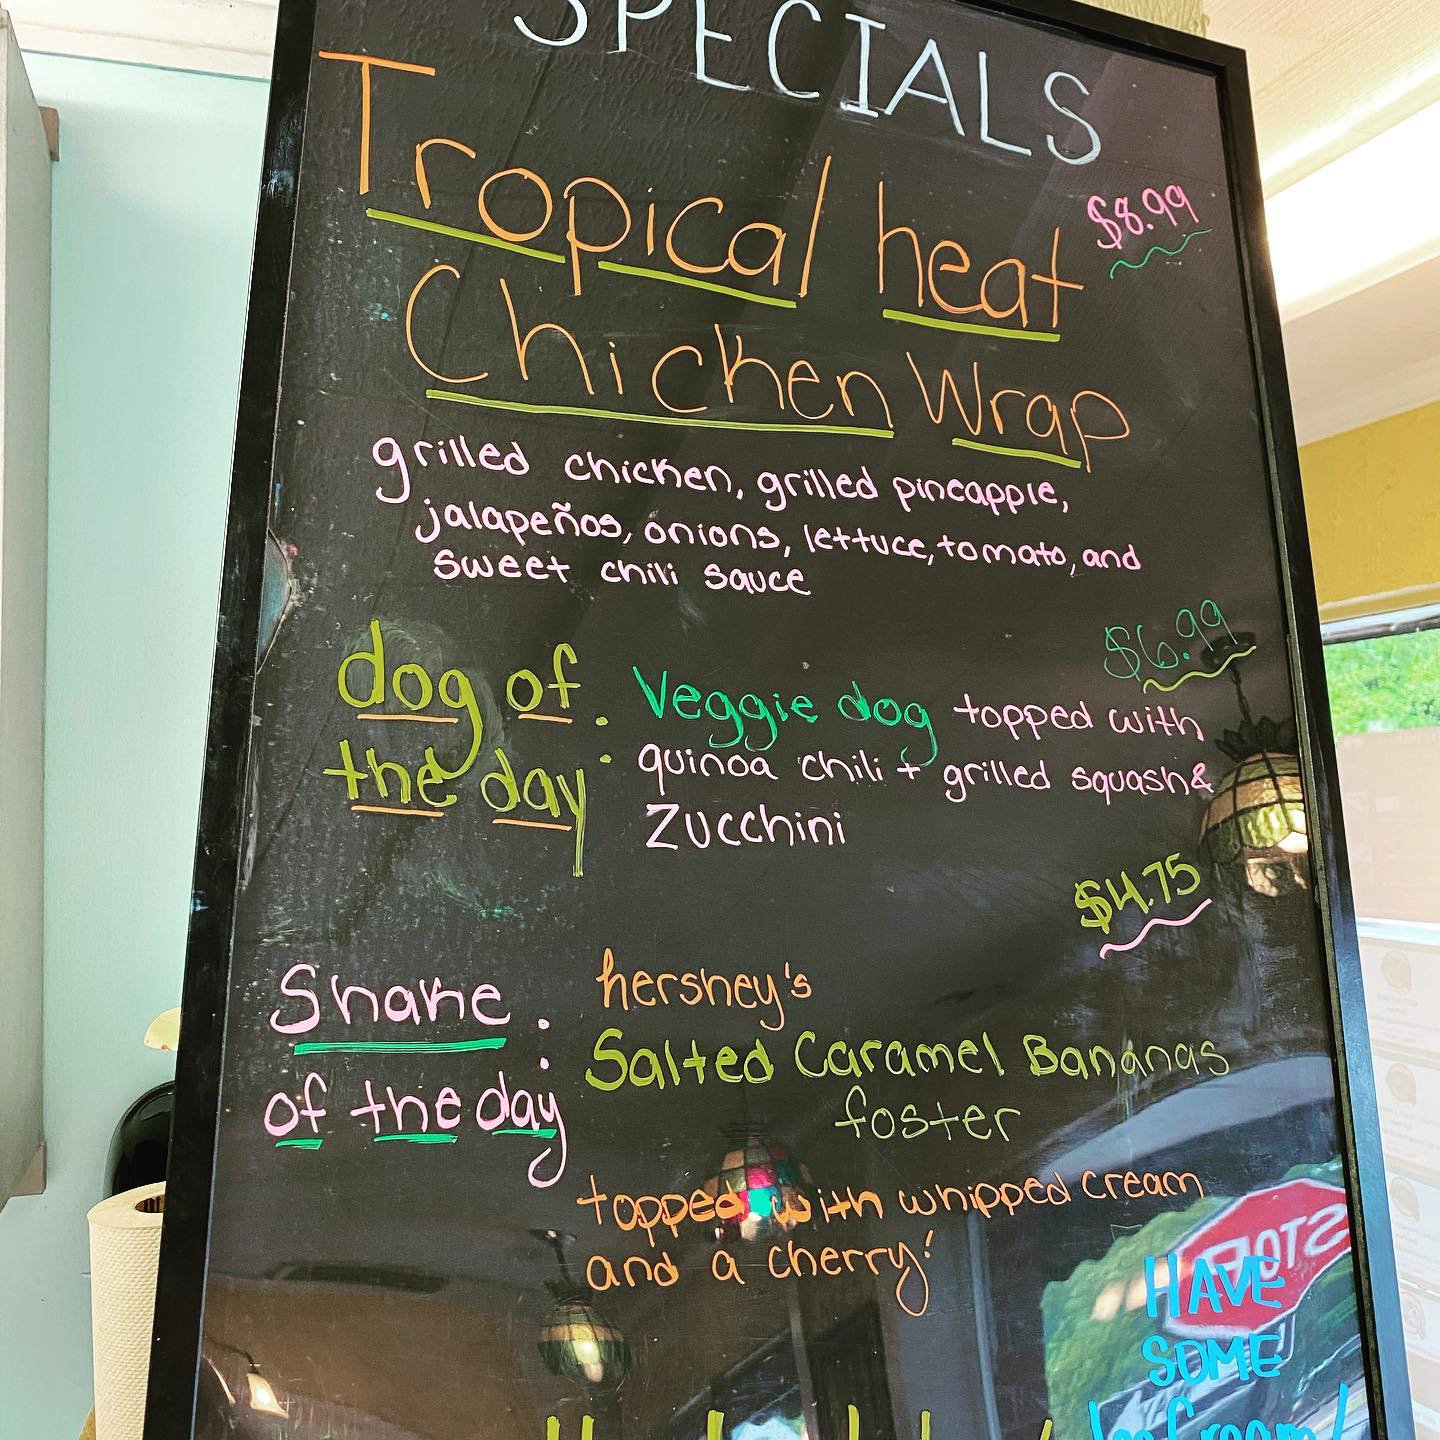 SPECIALS
Tropical heat $8.99
Chicken Wrap
grilled chicken, grilled pineapple,
jalapeños, onions, lettuce, tomato, and
sweet chili sauce
$6.99
dog of the day: Veggie dog topped with
quinoa chili + grilled squash &
Zucchini
$4.75
Shake of the day: hershey's
Salted Caramel Bananas
foster
topped with whipped cream
and a cherry!
STOP
HAVE
SOME
Ice Cream!